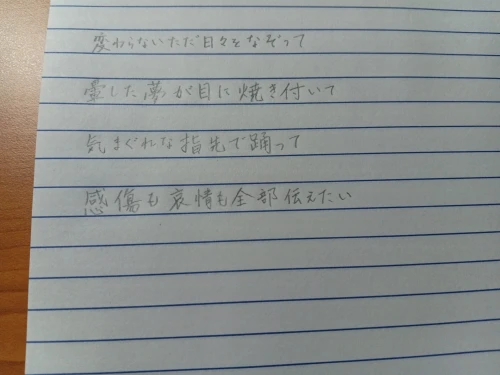 変わらないただ日々をなぞって
霊した夢が目に焼き付いて
気まぐれな指先で踊って
感傷も哀情も全部伝えたい